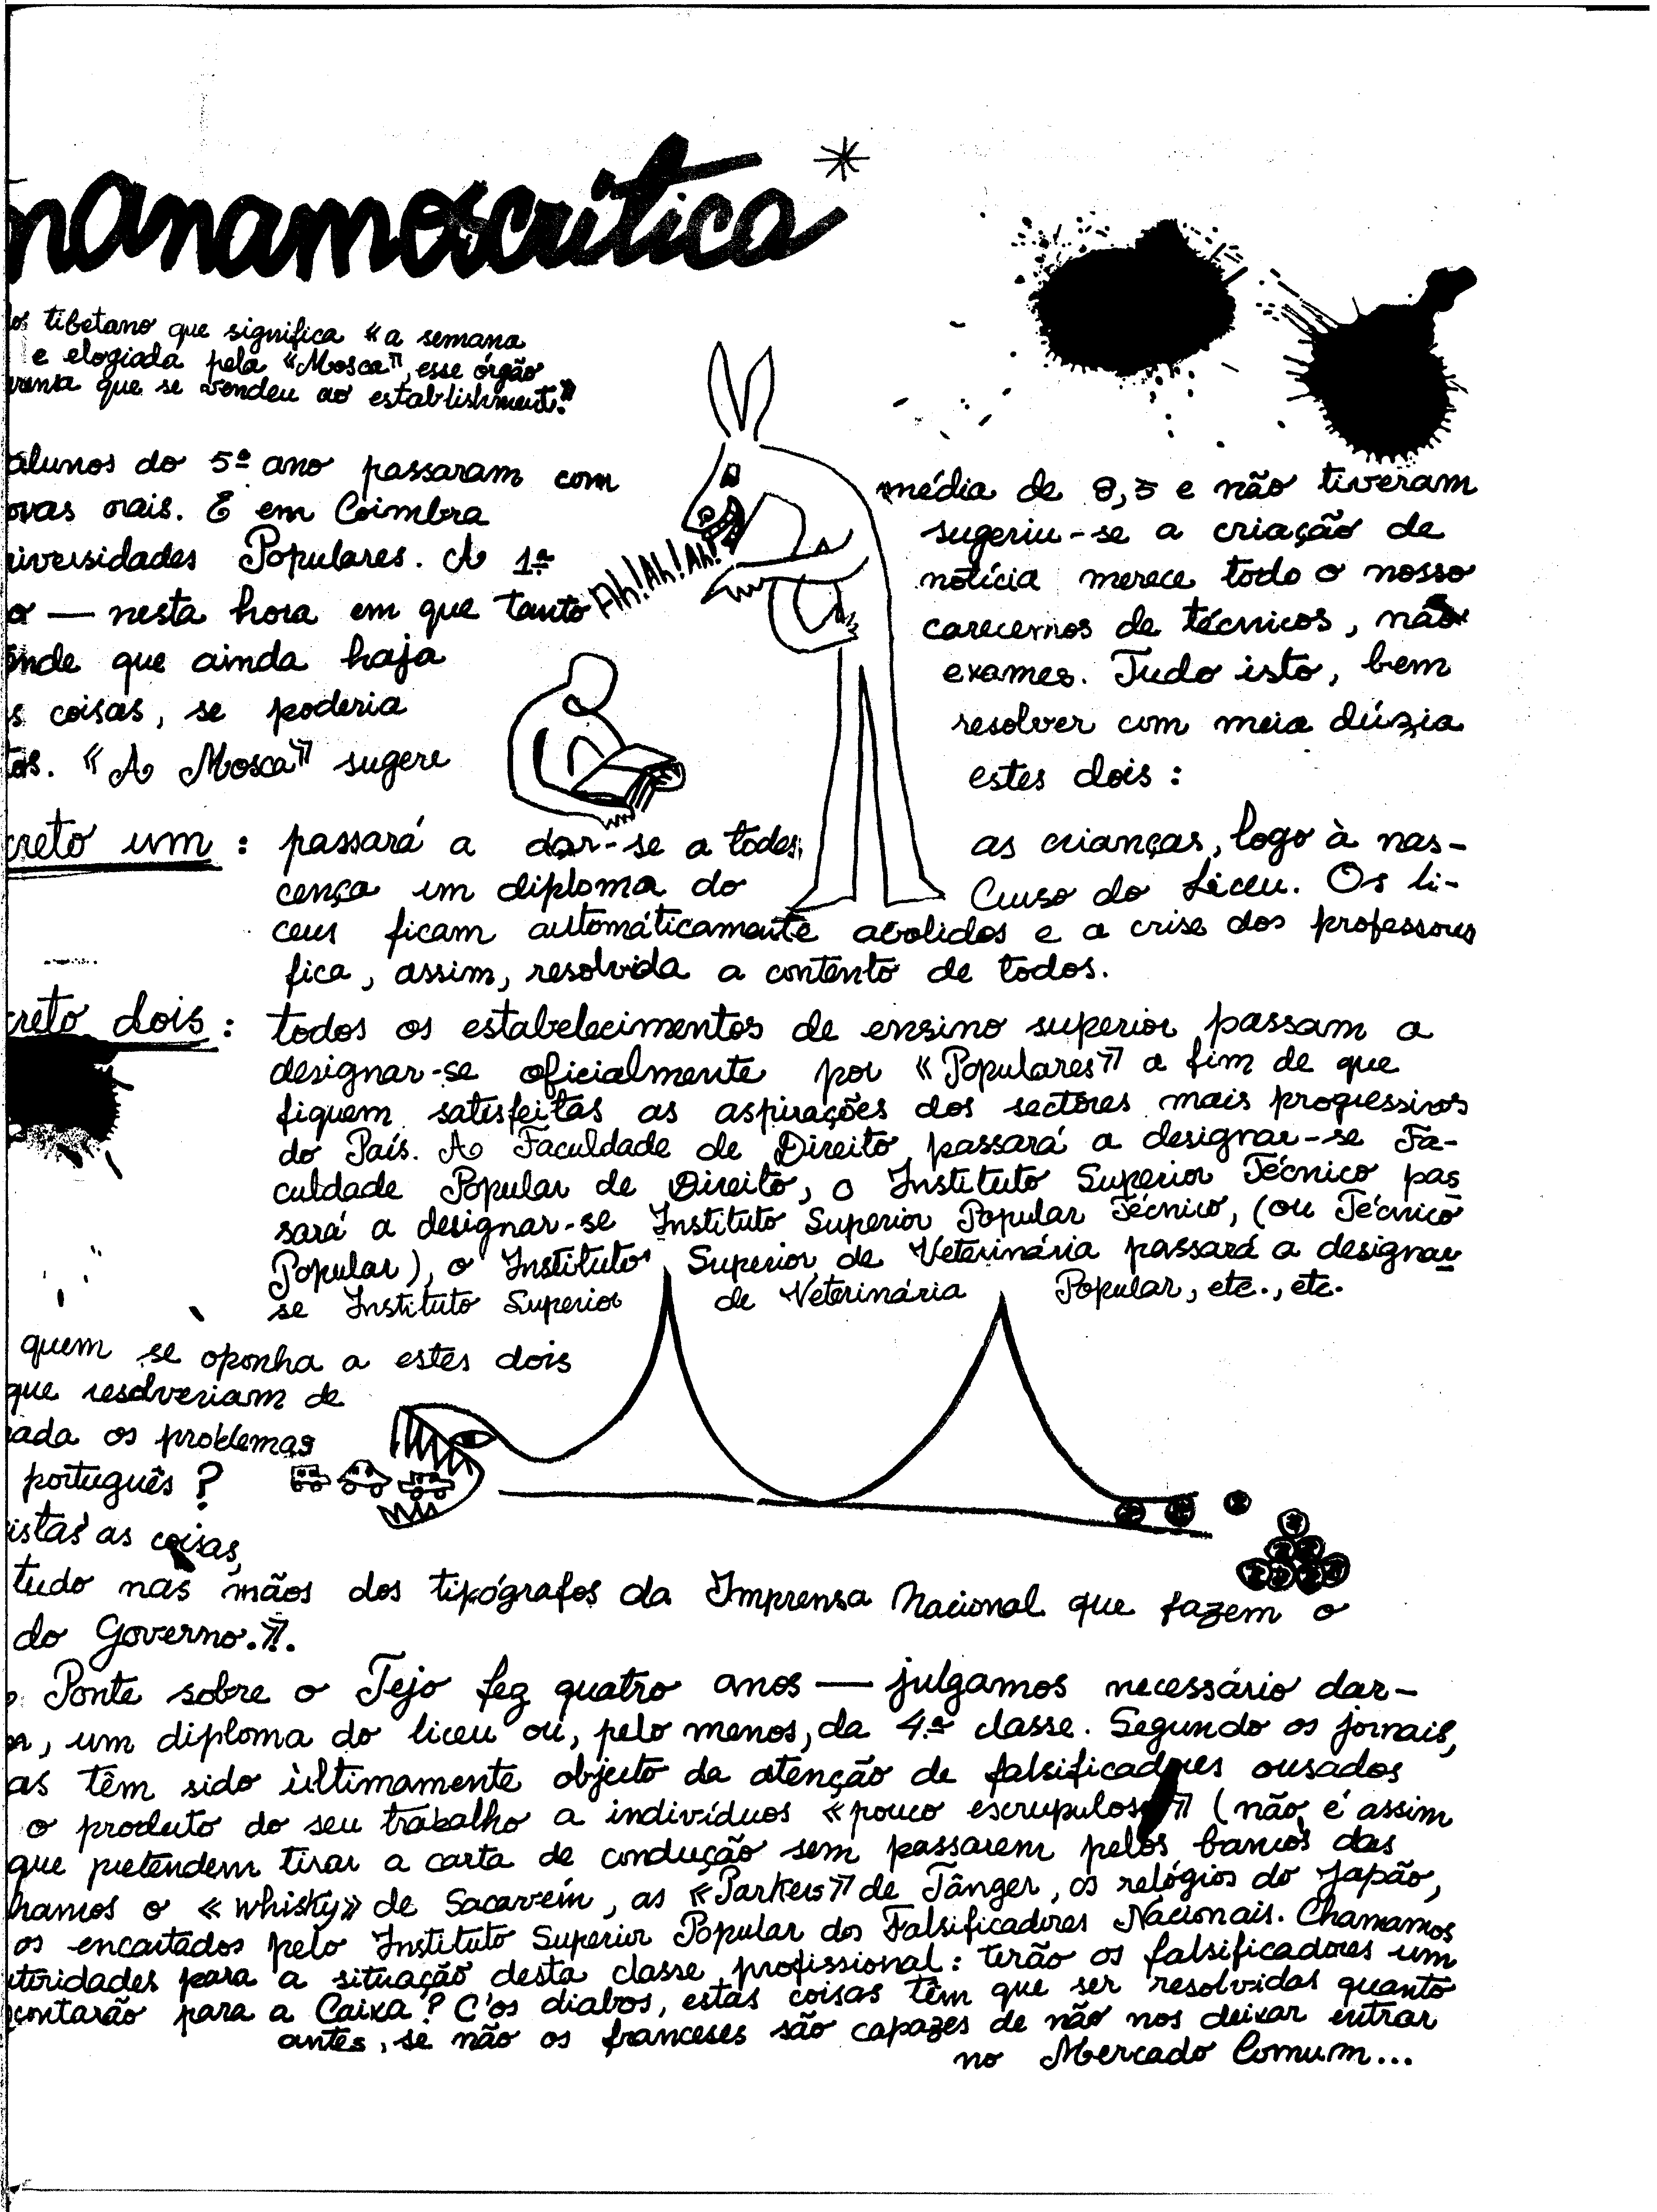 nanamoscrítica*
tibetano que significa «a semana
e elogiada pela «Mosca», esse órgão
que se vendeu ao establishment.»
alunos do 5º ano passaram com média de 8,5 e não tiveram
ovas orais. E em Coimbra sugeriu-se a criação de
iversidades Populares. A 1ª notícia merece todo o nosso
o — nesta hora em que tanto carecemos de técnicos, não
Ah! Ah! Ah!
ende que ainda haja exames. Tudo isto, bem
s coisas, se poderia resolver com meia dúzia
tos. «A Mosca» sugere estes dois :
creto um : passará a dar-se a todas as crianças, logo à nas-
cença um diploma do Curso do Liceu. Os li-
ceus ficam automáticamente abolidos e a crise dos professores
fica, assim, resolvida a contento de todos.
creto dois : todos os estabelecimentos de ensino superior passam a
designar-se oficialmente por «Populares» a fim de que
fiquem satisfeitas as aspirações dos sectores mais progressivos
do País. A Faculdade de Direito passará a designar-se Fa-
culdade Popular de Direito, o Instituto Superior Técnico pas
sará a designar-se Instituto Superior Popular Técnico, (ou Técnico
Popular), o Instituto Superior de Veterinária passará a designar
se Instituto Superior de Veterinária Popular, etc., etc.
quem se oponha a estes dois
que resolveriam de
ada os problemas
português ?
istas as coisas,
tudo nas mãos dos tipógrafos da Imprensa Nacional que fazem o
do Governo.».
Ponte sobre o Tejo fez quatro anos — julgamos necessário dar-
um diploma do liceu ou, pelo menos, da 4.ª classe. Segundo os jornais,
as têm sido ùltimamente objecto da atenção de falsificadores ousados
o produto do seu trabalho a indivíduos «pouco escrupulosos» (não é assim
que pretendem tirar a carta de condução sem passarem pelos bancos das
hamos o «whisky» de Sacavém, as «Parkers» de Tânger, os relógios do Japão,
os encartados pelo Instituto Superior Popular dos Falsificadores Nacionais. Chamamos
utoridades para a situação desta classe profissional : terão os falsificadores um
contarão para a Caixa? C'os diabos, estas coisas têm que ser resolvidas quanto
antes, se não os franceses são capazes de não nos deixar entrar
no Mercado Comum...